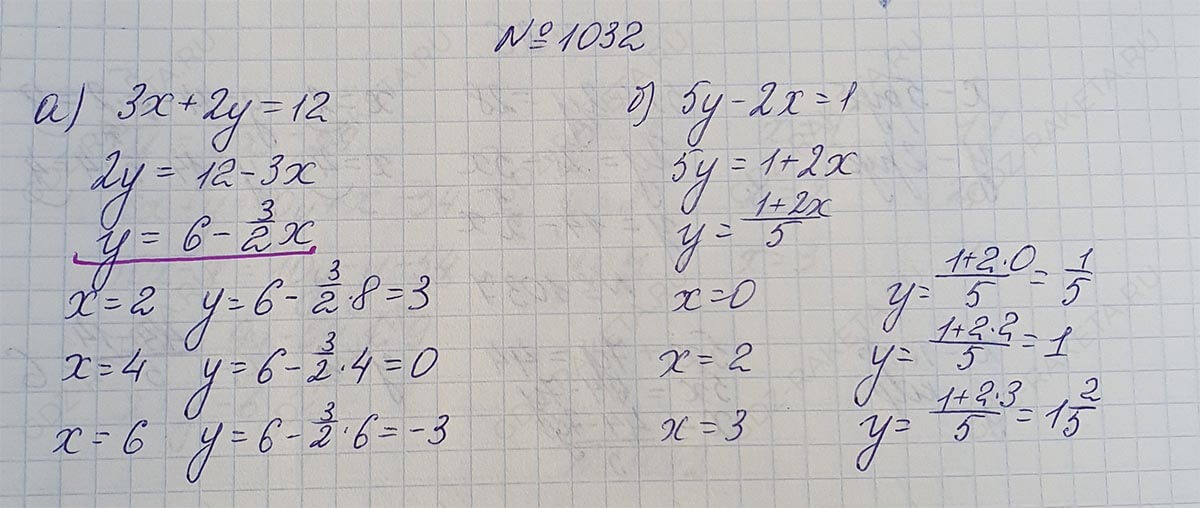 №1032
а) 3x+2y=12
2y=12-3x
y=6-3/2x
x=2 y=6-3/2·8=3
x=4 y=6-3/2·4=0
x=6 y=6-3/2·6=-3
б) 5y-2x=1
5y=1+2x
y=1+2x/5
x=0 y=1+2·0/5=1/5
x=2 y=1+2·2/5=1
x=3 y=1+2·3/5=1 2/5